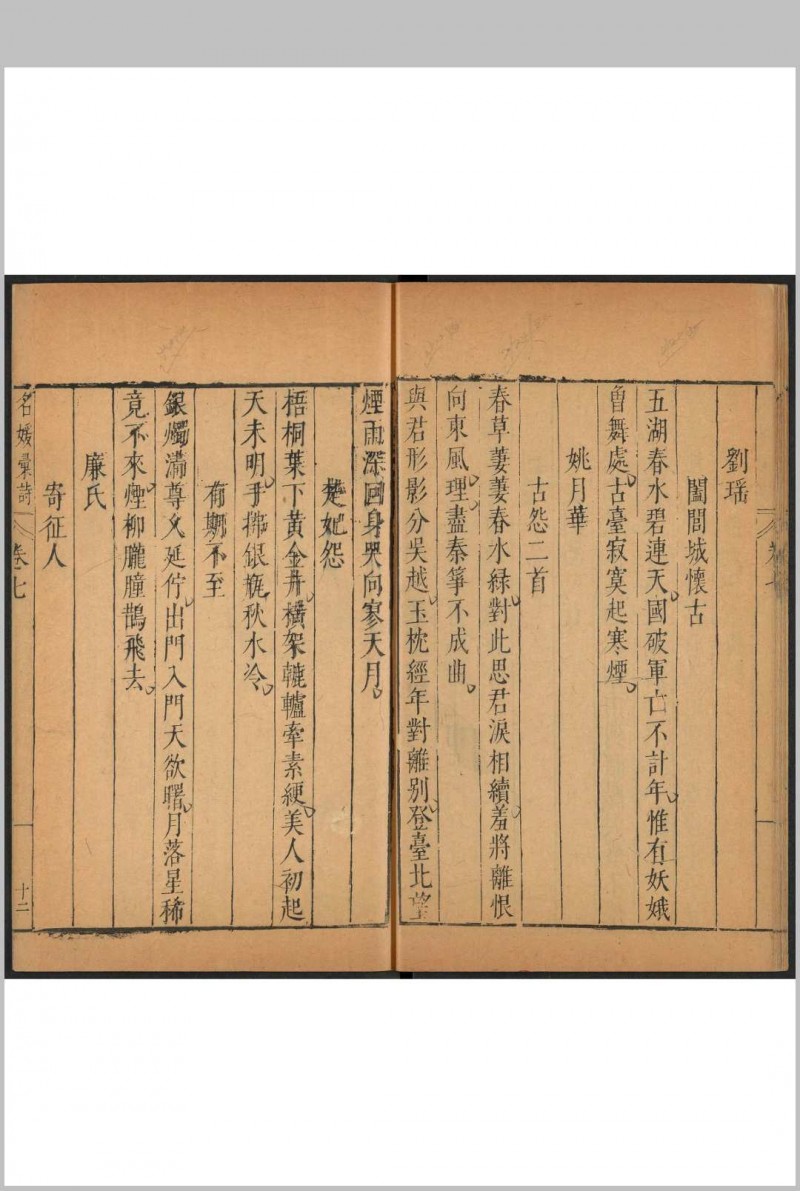 劉瑶
闔閭城懷古
五湖春水碧連天國破軍亡不計年惟有妖娥
曾舞處古臺寂寞起寒煙
姚月華
古怨二首
春草萋萋春水緑對此思君淚相續羞將離恨
向東風理盡秦箏不成曲
與君形影分吳越玉枕經年對離别登臺北望
煙雨深回身哭向寥天月
楚妃怨
梧桐葉下黄金井横架轆轤牽素綆美人初起
天未明手拂銀瓶秋水冷
有期不至
銀燭滿尊文延佇出門入門天欲曙月落星稀
竟不來煙柳朧朣鵲飛去
廉氏
寄征人
名媛彙詩
卷七
十二